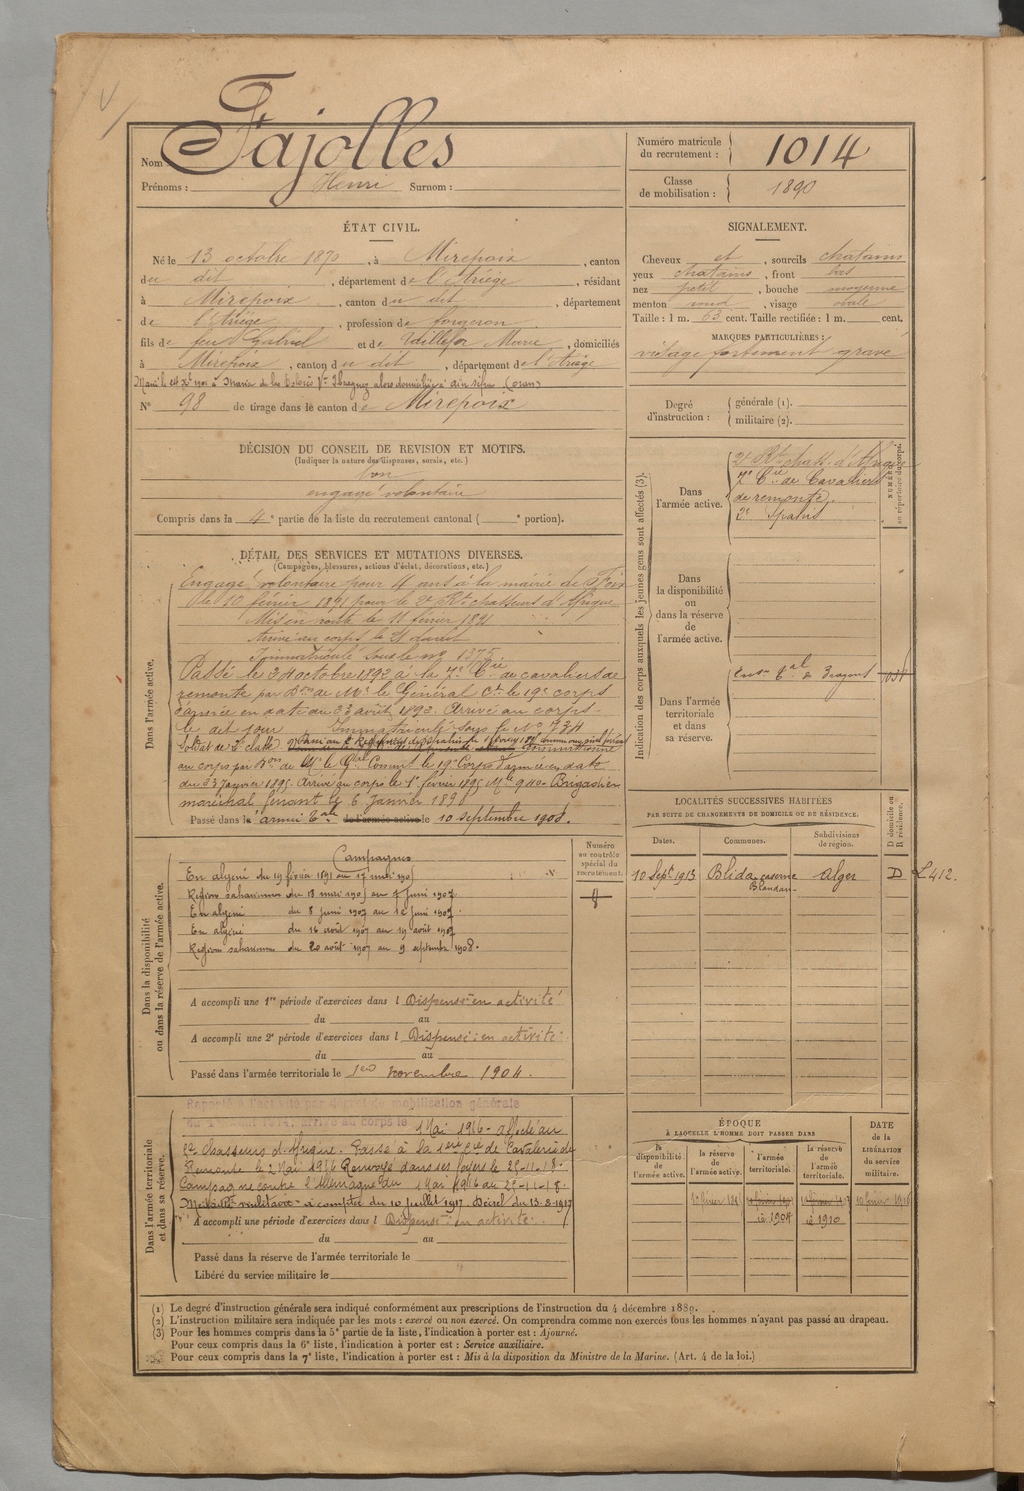 Nom Fajolles
Prénoms : Henri Surnom :
Numéro matricule du recrutement : 1014
Classe de mobilisation : 1890
ÉTAT CIVIL.
Né le 13 octobre 1870, à Mirepoix, canton
du dit, département de l'Ariège, résidant
à Mirepoix, canton du dit, département
de l'Ariège, profession de forgeron
fils de feu Gabriel et de Taillefer Marie, domiciliés
à Mirepoix, canton du dit, département de l'Ariège
Marié le 1901 à Maria de los Dolorès Vve alors domiciliée à Aïn Sefra (Oran)
N° 98 de tirage dans le canton de Mirepoix
SIGNALEMENT.
Cheveux et, sourcils chatains
yeux chatains, front bas
nez petit, bouche moyenne
menton rond, visage ovale
Taille : 1 m. 63 cent. Taille rectifiée : 1 m. cent.
MARQUES PARTICULIÈRES :
visage fortement gravé
Degré d'instruction : générale (1).
militaire (2).
DÉCISION DU CONSEIL DE REVISION ET MOTIFS.
(Indiquer la nature des dispenses, sursis, etc.)
bon
engagé volontaire
Compris dans la 4e partie de la liste du recrutement cantonal ( e portion).
Indication des corps auxquels les jeunes gens sont affectés (3).
NUMÉRO au répertoire du corps.
Dans l'armée active.
2e Rt chass. d'Afrique
7e Cie de Cavaliers
de remonte
2e Spahis
Dans la disponibilité ou dans la réserve de l'armée active.
Dans l'armée territoriale et dans sa réserve.
DÉTAIL DES SERVICES ET MUTATIONS DIVERSES.
(Campagnes, blessures, actions d'éclat, décorations, etc.)
Dans l'armée active.
Engagé volontaire pour 4 ans à la mairie de Foix
le 10 février 1891 pour le 2e Rt chasseurs d'Afrique
Mis en route le 11 février 1891
Arrivé au corps le 21 dudit
Immatriculé sous le no 1375
Passé le octobre 1892 à la 7e Cie de cavaliers de
remonte par Don de Mr le Général Ct le 19e corps
d'armée en date du 23 août 1892. Arrivé au corps
le dit jour Immatriculé sous le No 734
Soldat de 2e classe
au corps par Don de Mr le Gal Commt le 19e Corps d'armée en date
du 23 Janvier 1895. Arrivé au corps le 1er février 1895 Mle 940. Brigadier
maréchal ferrant le 6 Janvier 1898
Passé dans l'armée tale le 10 septembre 1908.
Dans la disponibilité ou dans la réserve de l'armée active.
Campagnes
En algérie du 19 février 1891 au 17 mai 1905
Régions sahariennes du 18 mai 1905 au 7 juin 1907
En algérie du 8 juin 1907 au 12 juin 1907
En algérie du 16 août 1907 au 19 août 1907
Régions sahariennes du 20 août 1907 au 9 septembre 1908.
A accompli une 1re période d'exercices dans l Dispensé en activité
du au
A accompli une 2e période d'exercices dans l Dispensé : en activité
du au
Passé dans l'armée territoriale le 1er novembre 1904.
Numéro au contrôle spécial du recrutement.
LOCALITÉS SUCCESSIVES HABITÉES
PAR SUITE DE CHANGEMENTS DE DOMICILE OU DE RÉSIDENCE.
Dates. Communes. Subdivisions de région. D domicile ou R résidence.
10 Sept 1913 Blida caserne Blandan Alger D L 412.
Dans l'armée territoriale et dans sa réserve.
Rappelé à l'activité par décret de mobilisation générale
du 1 août 1914, arrivé au corps le 1 Mai 1916 - affecté au
2e Chasseurs d'Afrique. Passé à la 1ère Cie de Cavaliers de
Remonte le 2 Mai 1916 Renvoyé dans ses foyers le 25-11-18.
Campagne contre l'Allemagne du 1 Mai 1916 au 25-11-18.
Médaille militaire à compter du 10 Juillet 1917. Décret du 13-8-1917
A accompli une période d'exercices dans l Dispensé en activité.
du au
Passé dans la réserve de l'armée territoriale le
Libéré du service militaire le
ÉPOQUE
À LAQUELLE L'HOMME DOIT PASSER DANS
la disponibilité de l'armée active. la réserve de l'armée active. l'armée territoriale. la réserve de l'armée territoriale.
DATE de la LIBÉRATION du service militaire.
1904 1910
(1) Le degré d'instruction générale sera indiqué conformément aux prescriptions de l'instruction du 4 décembre 1889.
(2) L'instruction militaire sera indiquée par les mots : exercé ou non exercé. On comprendra comme non exercés tous les hommes n'ayant pas passé au drapeau.
(3) Pour les hommes compris dans la 5e partie de la liste, l'indication à porter est : Ajourné.
Pour ceux compris dans la 6e liste, l'indication à porter est : Service auxiliaire.
Pour ceux compris dans la 7e liste, l'indication à porter est : Mis à la disposition du Ministre de la Marine. (Art. 4 de la loi.)